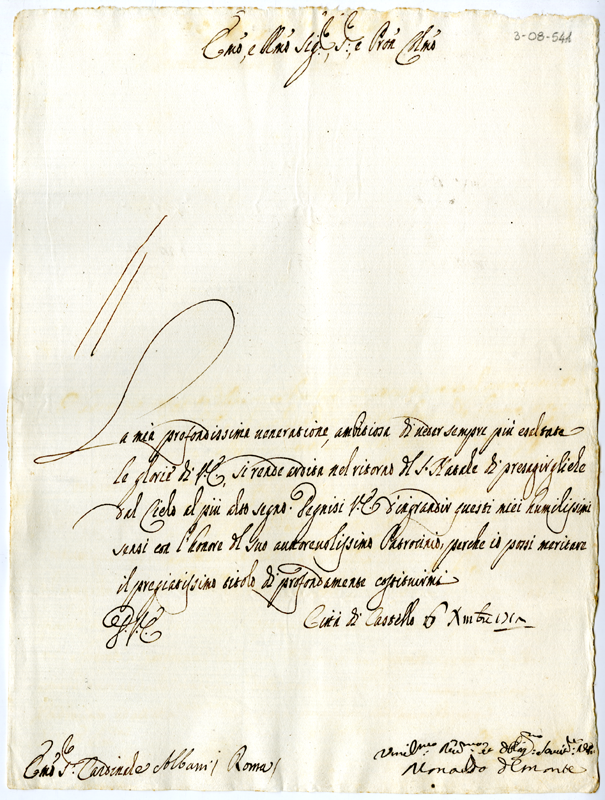 3-08-541
Emo, e Rmo Sigre, Sre, e Pron Colmo
La mia profondissima veneratione, ambitiosa di veder sempre più esaltate
le glorie di V.E. si rende ardita nel ritorno del S. Natale di presagirgliele
dal Cielo al più alto segno. Degnisi V.E. d'ingrandir questi miei humilissimi
sensi con l'honore del suo autorevolissimo Patrocinio, perche io possi meritare
il pregiatissimo titolo di profondamente costituirmi
D. V.E.
Città di Castello Xmbre
Emo Sre Cardinale Albani / Roma /
Umilmo Devmo et Obligmo
del Monte